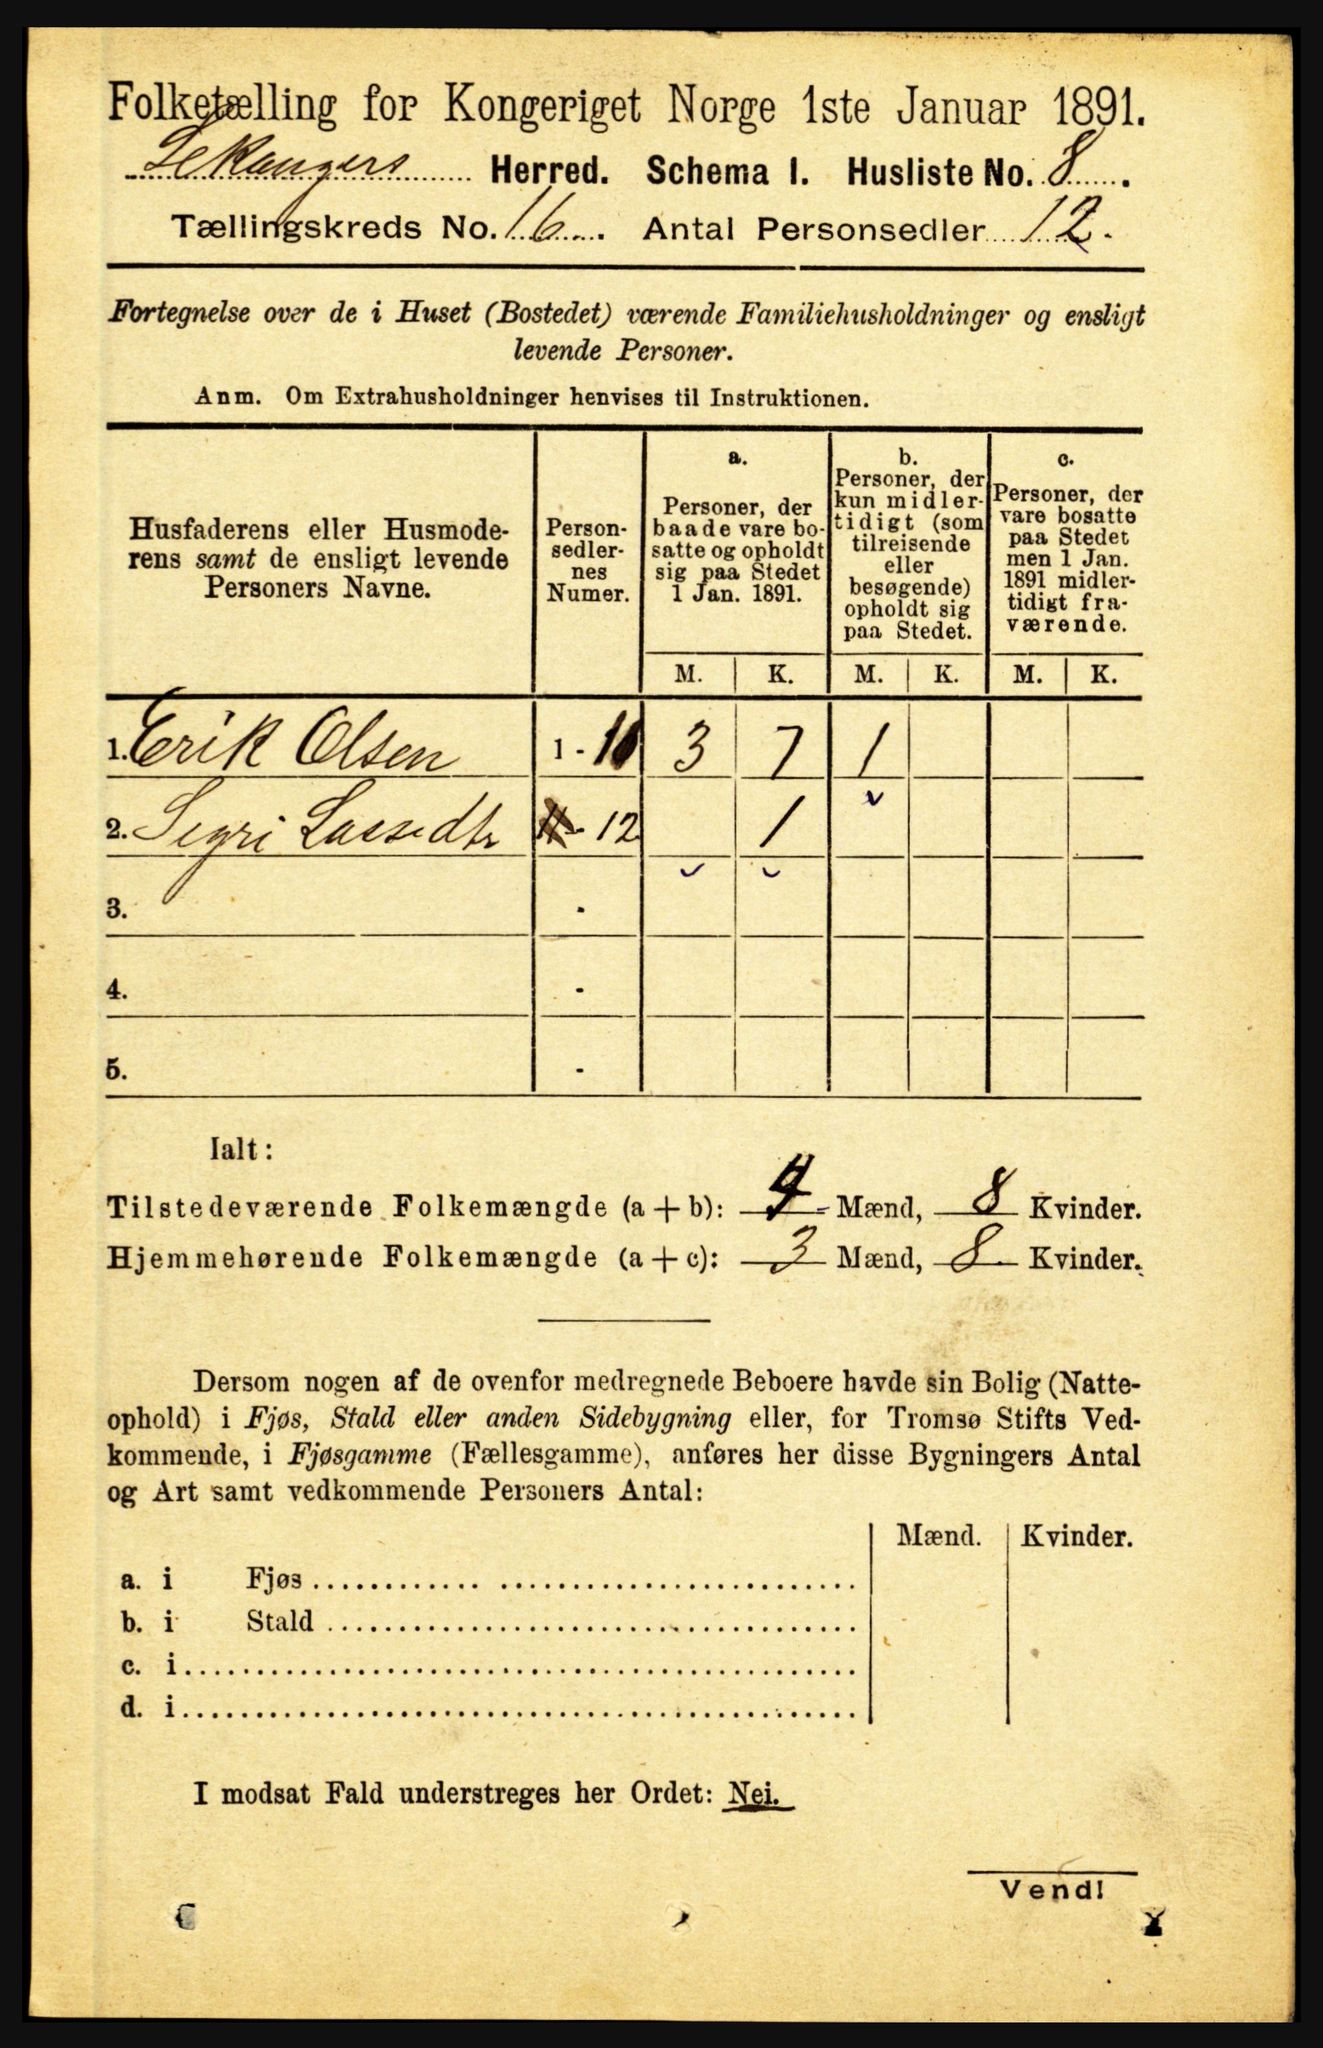 Folketælling for Kongeriget Norge 1ste Januar 1891.
Lekangers Herred. Schema I. Husliste No. 8.
Tællingskreds No. 16. Antal Personsedler 12.
Fortegnelse over de i Huset (Bostedet) værende Familiehusholdninger og ensligt
levende Personer.
Anm. Om Extrahusholdninger henvises til Instruktionen.
Husfaderens eller Husmode-
rens samt de ensligt levende
Personers Navne.
Person-
sedler-
nes
Numer.
a.
Personer, der
baade vare bo-
satte og opholdt
sig paa Stedet
1 Jan. 1891.
b.
Personer, der
kun midler-
tidigt (som
tilreisende
eller
besøgende)
opholdt sig
paa Stedet.
c.
Personer, der
vare bosatte
paa Stedet
men 1 Jan.
1891 midler-
tidigt fra-
værende.
M. K. M. K. M. K.
1. Erik Olsen 1 - 11 3 7 1
2. Sigri Lassedtr - 12 1
3. -
4. -
5. -
Ialt:
Tilstedeværende Folkemængde (a + b): 4 Mænd, 8 Kvinder.
Hjemmehørende Folkemængde (a + c): 3 Mænd, 8 Kvinder.
Dersom nogen af de ovenfor medregnede Beboere havde sin Bolig (Natte-
ophold) i Fjøs, Stald eller anden Sidebygning eller, for Tromsø Stifts Ved-
kommende, i Fjøsgamme (Fællesgamme), anføres her disse Bygningers Antal
og Art samt vedkommende Personers Antal:
Mænd. Kvinder.
a. i Fjøs
b. i Stald
c. i
d. i
I modsat Fald understreges her Ordet: Nei.
Vend!